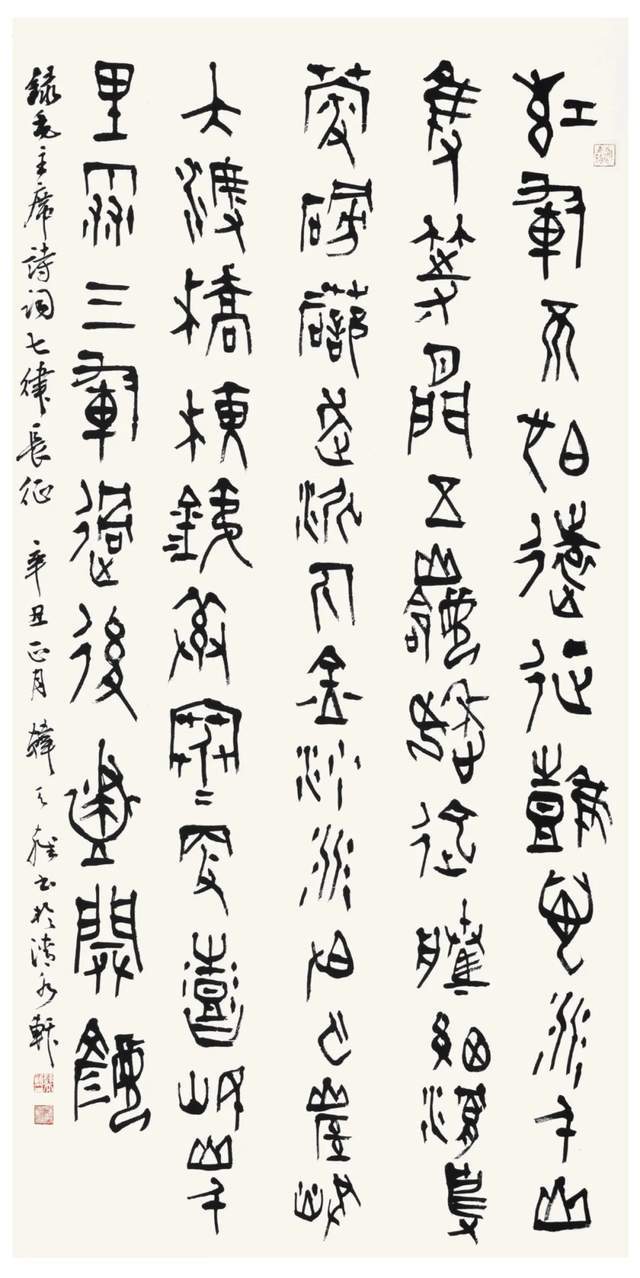 紅軍不怕遠征難萬水千山
隻等閒五嶺逶迤騰細浪烏
蒙磅礴走泥丸金沙水拍云崖暖
大渡橋橫鐵索寒更喜岷山千
里雪三軍過後盡開顏
録毛主席詩詞七律長征 辛丑正月 韓天雍書於清軒